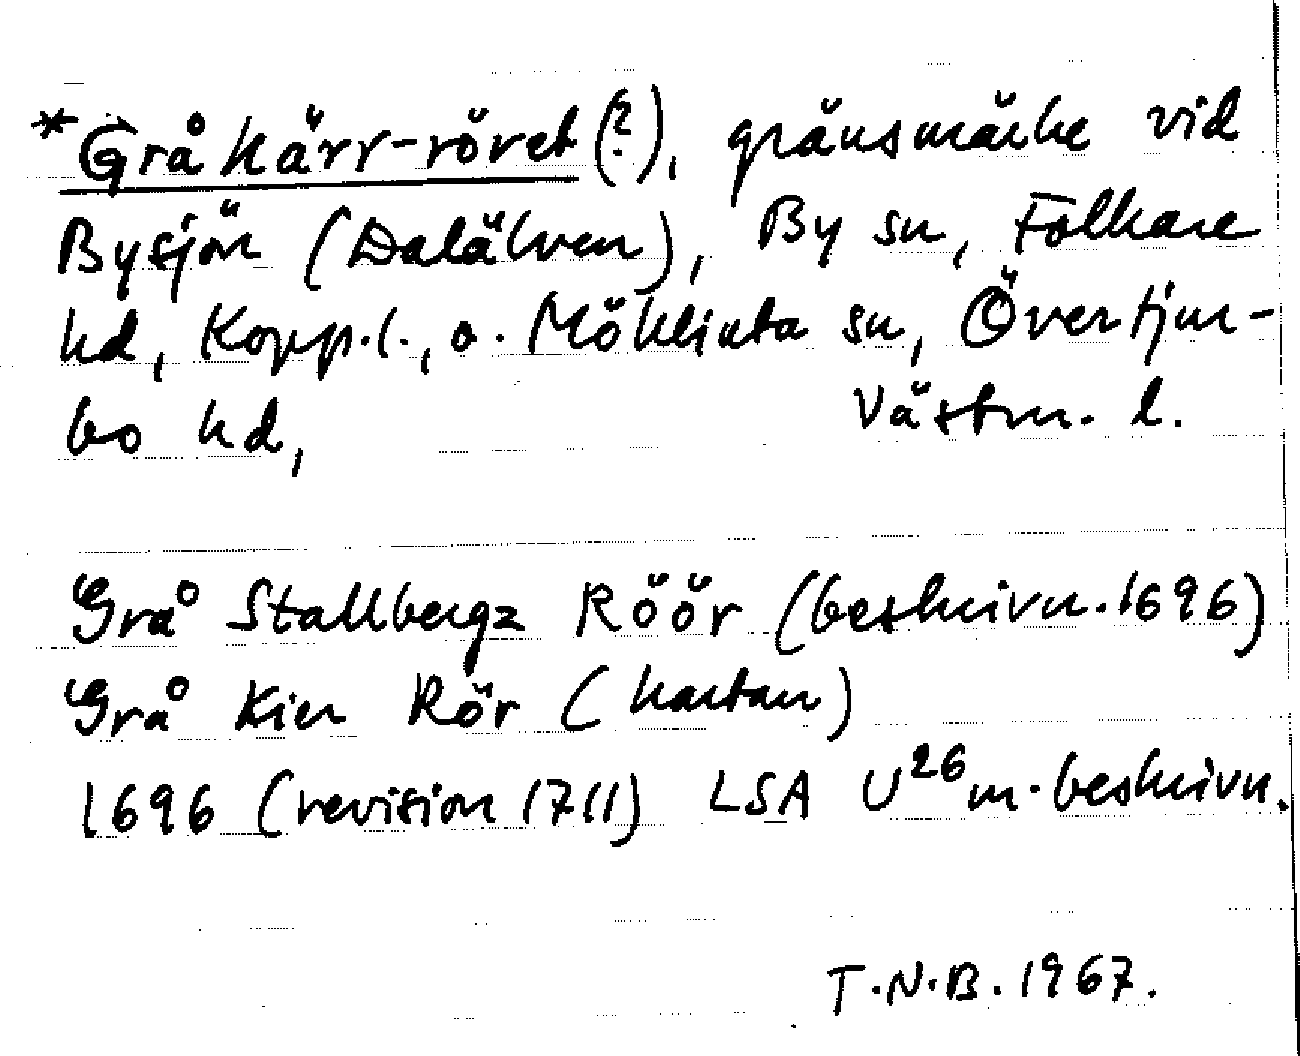 *Gråkärr-röret(?), gränsmärke vid
Bysjön (Dalälven), By sn, Folkare
hd, Kopp.l., o. Möklinta sn, Övertjur-
bo hd, Västm. l.
Grå Stallbergz Röör (beskrivn. 1696)
Grå Kier Rör (kartan)
1696 (revision 1711) LSA U26 m. beskrivn.
T.N.B. 1967.